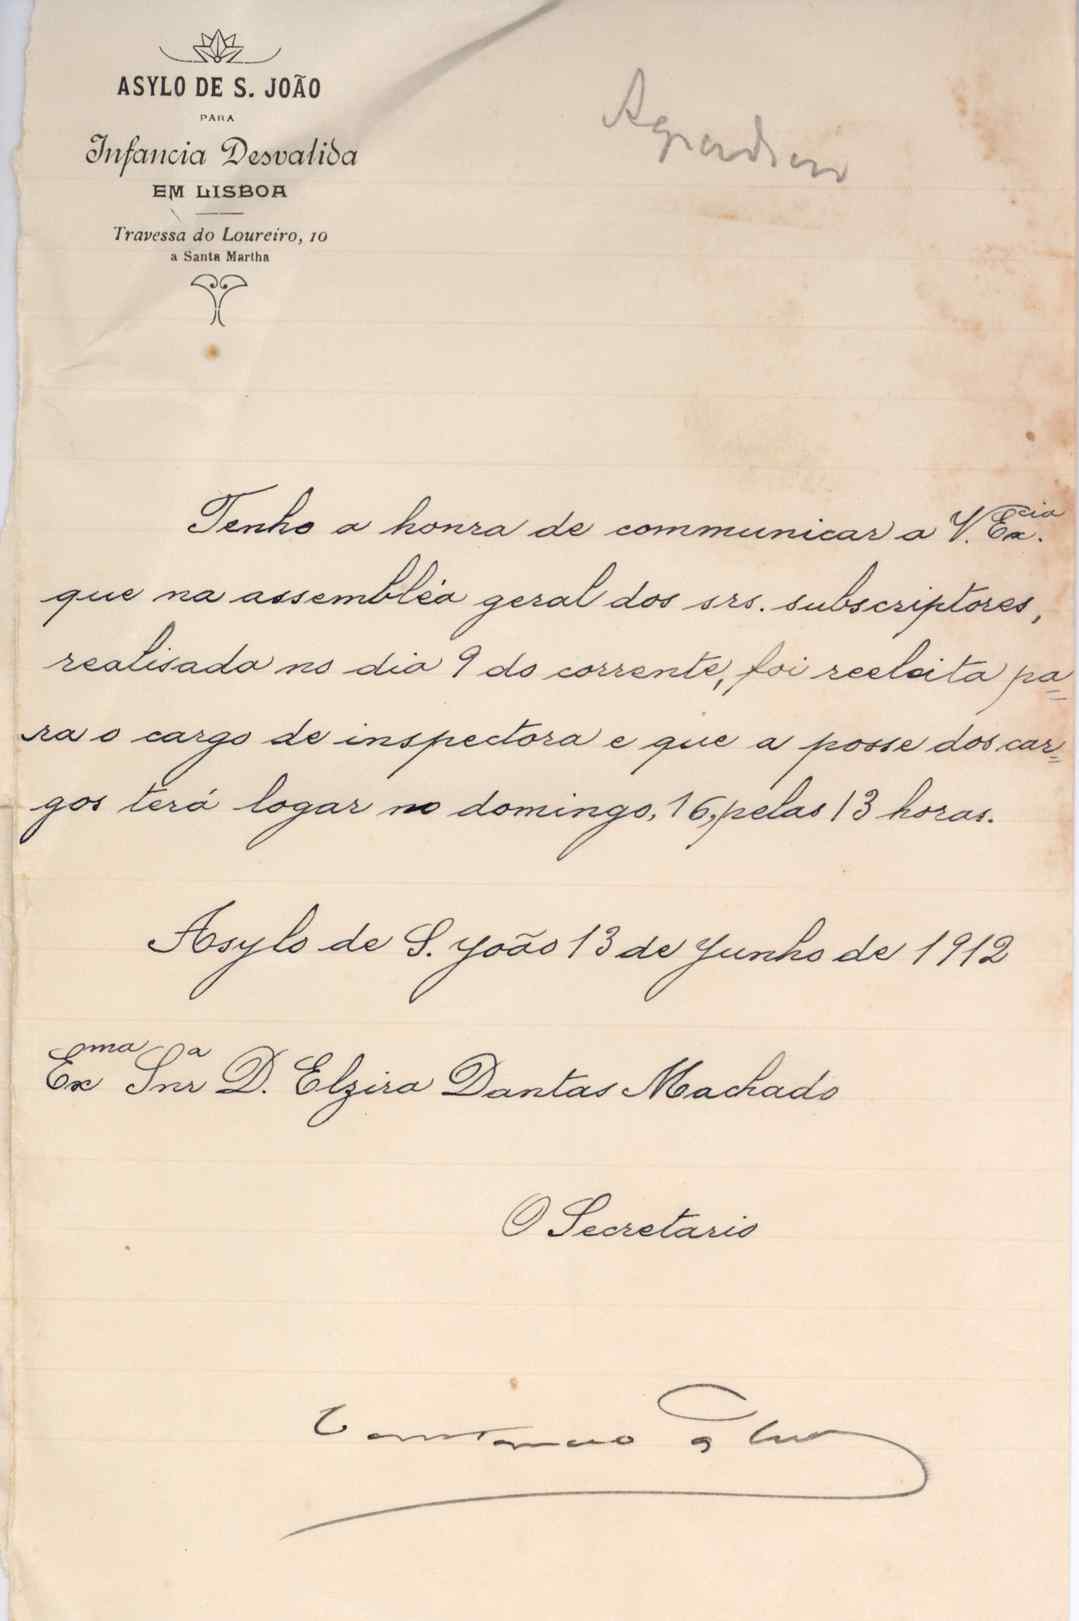 ASYLO DE S. JOÃO
PARA
Infancia Desvalida
EM LISBOA
Travessa do Loureiro, 10
a Santa Martha
Tenho a honra de communicar a V. Ex.cia
que na assembléa geral dos srs. subscriptores,
realisada no dia 9 do corrente, foi reeleita pa=
ra o cargo de inspectora e que a posse dos car=
gos terá logar no domingo, 16, pelas 13 horas.
Asylo de S. João 13 de Junho de 1912
Exma Snra D. Elzira Dantas Machado
O Secretario